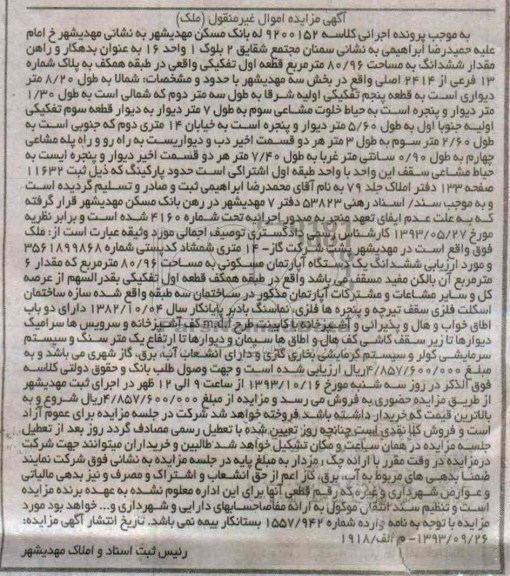 آگهی مزایده اموال غیرمنقول (ملک)
به موجب پرونده اجرائی کلاسه ۹۲۰۰۱۵۲ له بانک مسکن مهدیشهر به نشانی مهدیشهر خ امام
علیه حمیدرضا ابراهیمی به نشانی سمنان مجتمع شقایق ۲ بلوک ۱ واحد ۱۶ به عنوان بدهکار و راهن
مقدار ششدانگ به مساحت ۸۰/۹۶ مترمربع قطعه اول تفکیکی واقعی در طبقه همکف به پلاک شماره
۱۳ فرعی از ۲۴۱۴ اصلی واقع در بخش سه مهدیشهر با حدود و مشخصات: شمالا به طول ۸/۲۰ متر
دیواری است به قطعه پنجم تفکیکی اولیه شرقا به طول سه متر دوم که شمالی است به طول ۱/۳۰
متر دیوار و پنجره است به حیاط خلوت مشاعی سوم به طول ۷ متر دیوار به دیوار قطعه سوم تفکیکی
اولیه جنوبا اول به طول ۵/۶۰ متر دیوار و پنجره است به خیابان ۱۴ متری دوم که جنوبی است به
طول ۲/۶۰ متر سوم به طول ۳ متر هر دو قسمت اخیر درب و دیواریست به راه رو و راه پله مشاعی
چهارم به طول ۰/۹۰ سانتی متر غربا به طول ۷/۴۰ متر هر دو قسمت اخیر دیوار و پنجره ایست به
حیاط مشاعی سقف این واحد با واحد طبقه اول اشتراکی است حدود پارکینگ که ذیل ثبت ۱۱۶۳۲
صفحه ۱۳۳ دفتر املاک جلد ۷۹ به نام آقای محمدرضا ابراهیمی ثبت و صادر و تسلیم گردیده است
و به موجب سند/ اسناد رهنی ۵۳۸۲۳ دفتر ۷ مهدیشهر در رهن بانک مسکن مهدیشهر قرار گرفته
که به علت عدم ایفای تعهد منجر به صدور اجرائیه تحت شماره ۴۱۶۰ شده است و برابر نظریه
مورخ ۱۳۹۳/۰۵/۲۷ کارشناس رسمی دادگستری توصیف اجمالی مورد وثیقه عبارت است از: ملک
فوق واقع است در مهدیشهر پشت شرکت گاز – ۱۴ متری شمشاد کدپستی شماره ۳۵۶۱۸۹۹۸۶۸
و مورد ارزیابی ششدانگ یک دستگاه آپارتمان مسکونی به مساحت ۸۰/۹۶ مترمربع که مقدار ۶
مترمربع آن بالکن مفید مسقف می باشد واقع در طبقه همکف قطعه اول تفکیکی بقدرالسهم از عرصه
کل و سایر مشاعات و مشترکات آپارتمان مذکور در ساختمان سه طبقه واقع شده سازه ساختمان
اسکلت فلزی سقف تیرچه و پنجره ها فلزی، نماسنگ بادبر پایانکار سال ۱۳۸۲/۱۰/۰۴ دارای دو باب
اطاق خواب و هال و پذیرائی و آشپزخانه با کابینت طرح m.d.f کف آشپزخانه و سرویس ها سرامیک
دیوارها تا زیر سقف کاشی کف هال و اطاق ها سیمان و دیوارها تا ارتفاع یک متر سنگ و سیستم
سرمایشی کولر و سیستم گرمایشی بخاری گازی و دارای انشعاب آب، برق، گاز شهری می باشد و به
مبلغ ۴/۸۵۷/۶۰۰/۰۰۰ریال ارزیابی شده است و جهت وصول طلب بانک و حقوق دولتی کلاسه
فوق الذکر در روز سه شنبه مورخ ۱۳۹۳/۱۰/۱۶ از ساعت ۹ الی ۱۲ ظهر در اجرای ثبت مهدیشهر
از طریق مزایده حضوری به فروش می رسد و مزایده از مبلغ ۴/۸۵۷/۶۰۰/۰۰۰ریال شروع و به
بالاترین قیمت که خریدار داشته باشد فروخته خواهد شد شرکت در جلسه مزایده برای عموم آزاد
است و فروش کلا نقدی است چنانچه روز تعیین شده با تعطیل رسمی مصادف گردد روز بعد از تعطیل
جلسه مزایده در همان ساعت و مکان تشکیل خواهد شد طالبین و خریداران میتوانند جهت شرکت
در مزایده در وقت مقرر با ارائه چک رمزدار به مبلغ پایه در جلسه مزایده به نشانی فوق شرکت نمایند
ضمنا بدهی های مربوط به آب، برق، گاز اعم از حق انشعاب و اشتراک و مصرف و نیز بدهی مالیاتی
و عوارض شهرداری و غیره که رقم قطعی آنها برای این اداره معلوم نشده به عهده برنده مزایده
است و تنظیم سند انتقال موکول به ارائه مفاصاحسابهای دارایی و شهرداری و... خواهد بود مورد
مزایده با توجه به نامه وارده شماره ۱۵۵۷/۹۴۲ بستانکار بیمه نمی باشد. تاریخ انتشار آگهی مزایده:
۱۳۹۳/۰۹/۲۶- م الف/۱۹۱۸
رئیس ثبت اسناد و املاک مهدیشهر